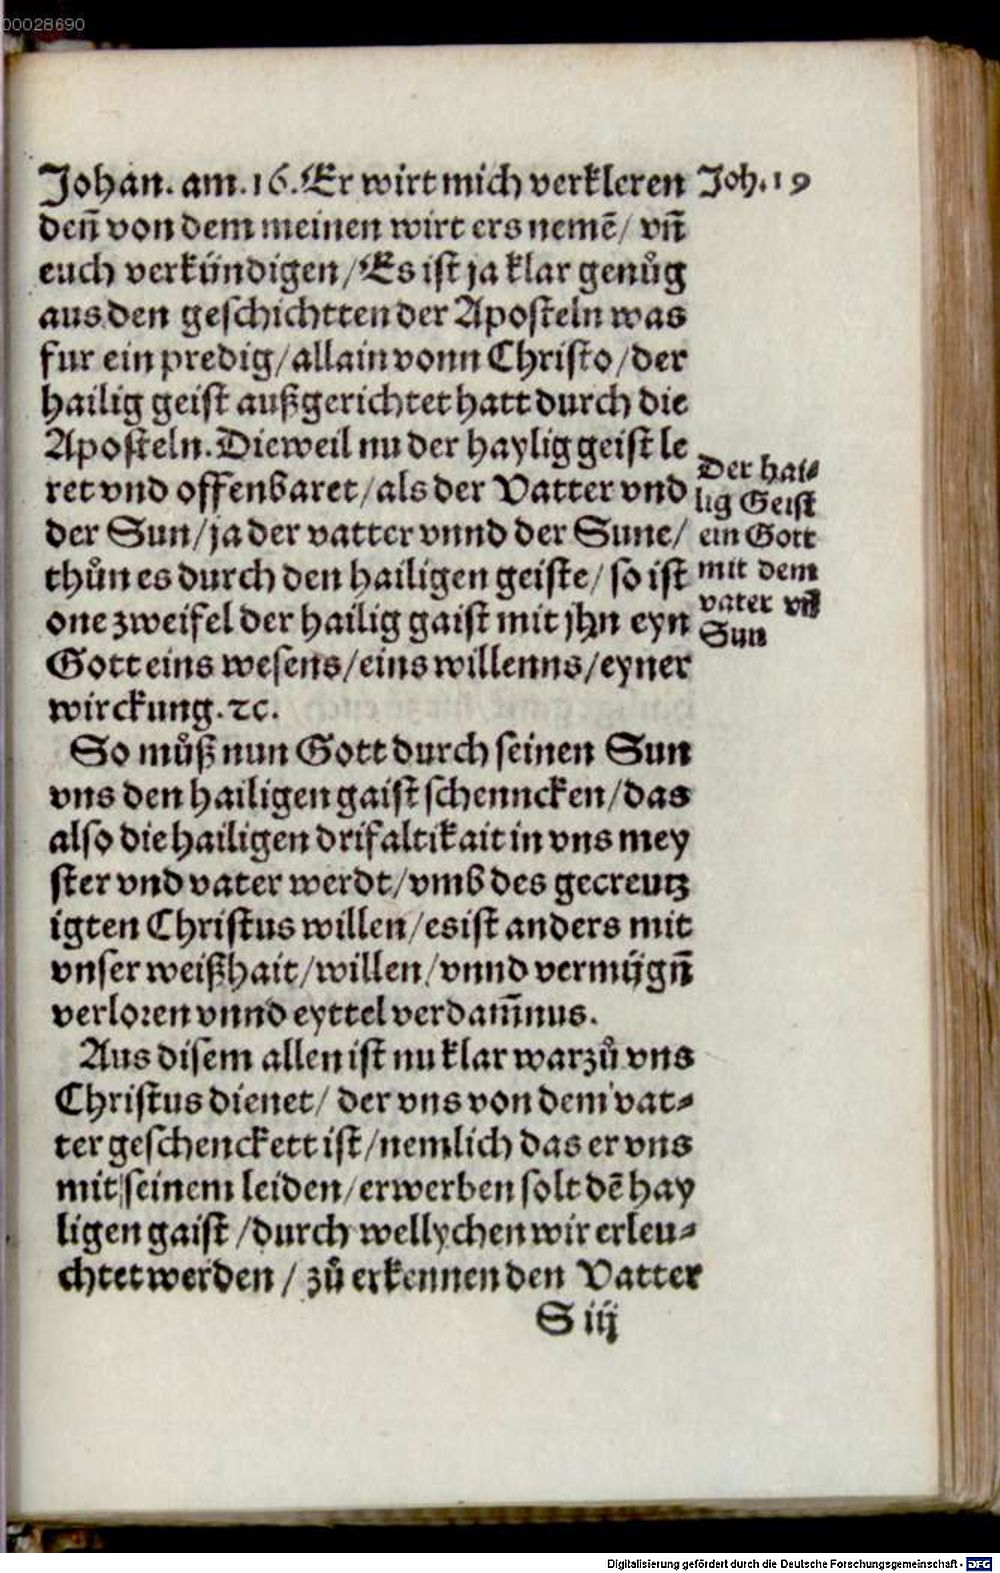 00028690
Johan. am. 16. Er wirt mich verkleren
deñ von dem meinen wirt ers nemẽ/ vñ
euch verkündigen/ Es ist ja klar genůg
aus den geschichtten der Aposteln was
fur ein predig/ allain vonn Christo/ der
hailig geist außgerichtet hatt durch die
Aposteln. Dieweil nu der haylig geist le
ret vnd offenbaret/ als der Vatter vnd
der Sun/ ja der vatter vnnd der Sune/
thůn es durch den hailigen geiste/ so ist
one zweifel der hailig gaist mit jhn eyn
Gott eins wesens/ eins willenns/ eyner
wirckung. ꝛc.
So můß nun Gott durch seinen Sun
vns den hailigen gaist schenncken/ das
also die hailigen drifaltikait in vns mey
ster vnd vater werdt/ vmb des gecreutz
igten Christus willen/ es ist anders mit
vnser weißhait/ willen/ vnnd vermügñ
verloren vnnd eyttel verdam̃nus.
Aus disem allen ist nu klar warzů vns
Christus dienet/ der vns von dem vat⸗
ter geschenckett ist/ nemlich das er vns
mit seinem leiden/ erwerben solt dẽ hay
ligen gaist/ durch wellychen wir erleu⸗
chtet werden/ zů erkennen den Vatter
S iij
Joh. 19
Der hai⸗
lig Geist
ein Gott
mit dem
vater vñ
Sun
Digitalisierung gefördert durch die Deutsche Forschungsgemeinschaft - DFG